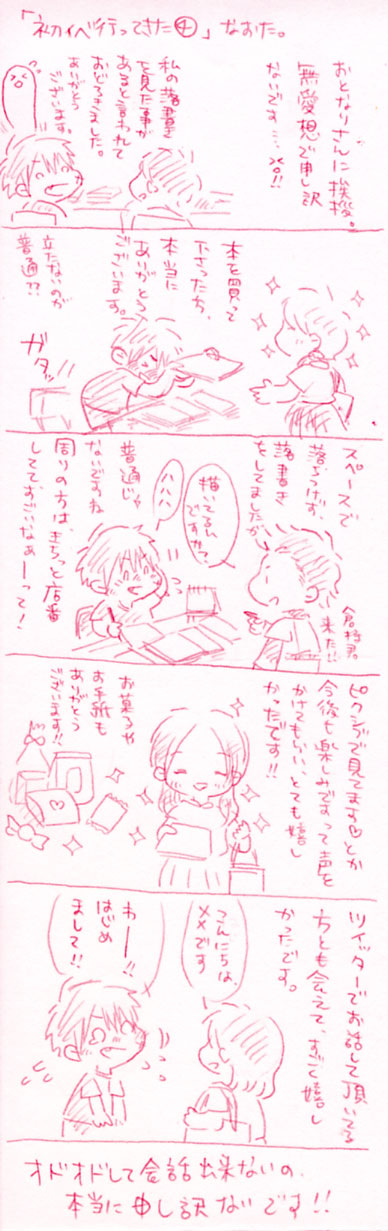 「初イベ行ってきた④」なおた。
おとなりさんに挨拶。
無愛想で申し訳
ないです…、xo!!
私の落書き
を見た事が
あると言われて
おどろきました。
ありがとう
ございます。
本を買って
下さった方、
本当に
ありがとう
ございます。
立たないのが
普通??
ガタッ!!
スペースで
落ちつけず、
落書き
をしてましたが
倉持君
来た!!
描いてるん
ですか?
ハハハ
普通じゃ
ないですね
周りの方は、きちっと店番
してて、すごいなぁーって!
ピクシブで見てます♡とか
今後も楽しみですって声を
かけてもらい、とても嬉し
かったです!!
お菓子や
お手紙も
ありがとう
ございます!!
ツイッターでお話して頂いてる
方とも会えて、すごく嬉し
かったです。
こんにちは、
××です
わー!!
はじめ
まして!!
オドオドして会話出来ないの、
本当に申し訳ないです!!